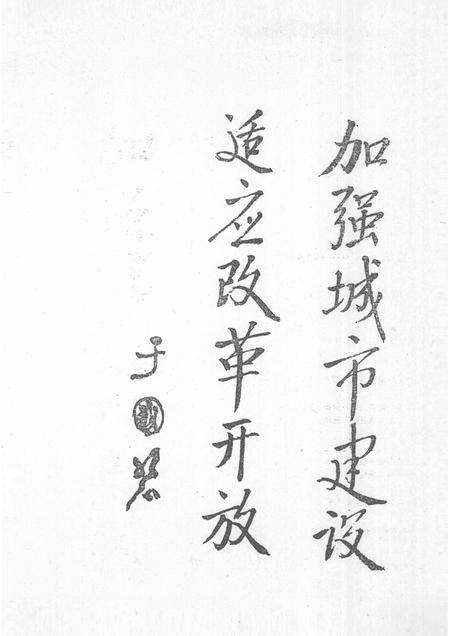 加强城市建设
适应改革开放